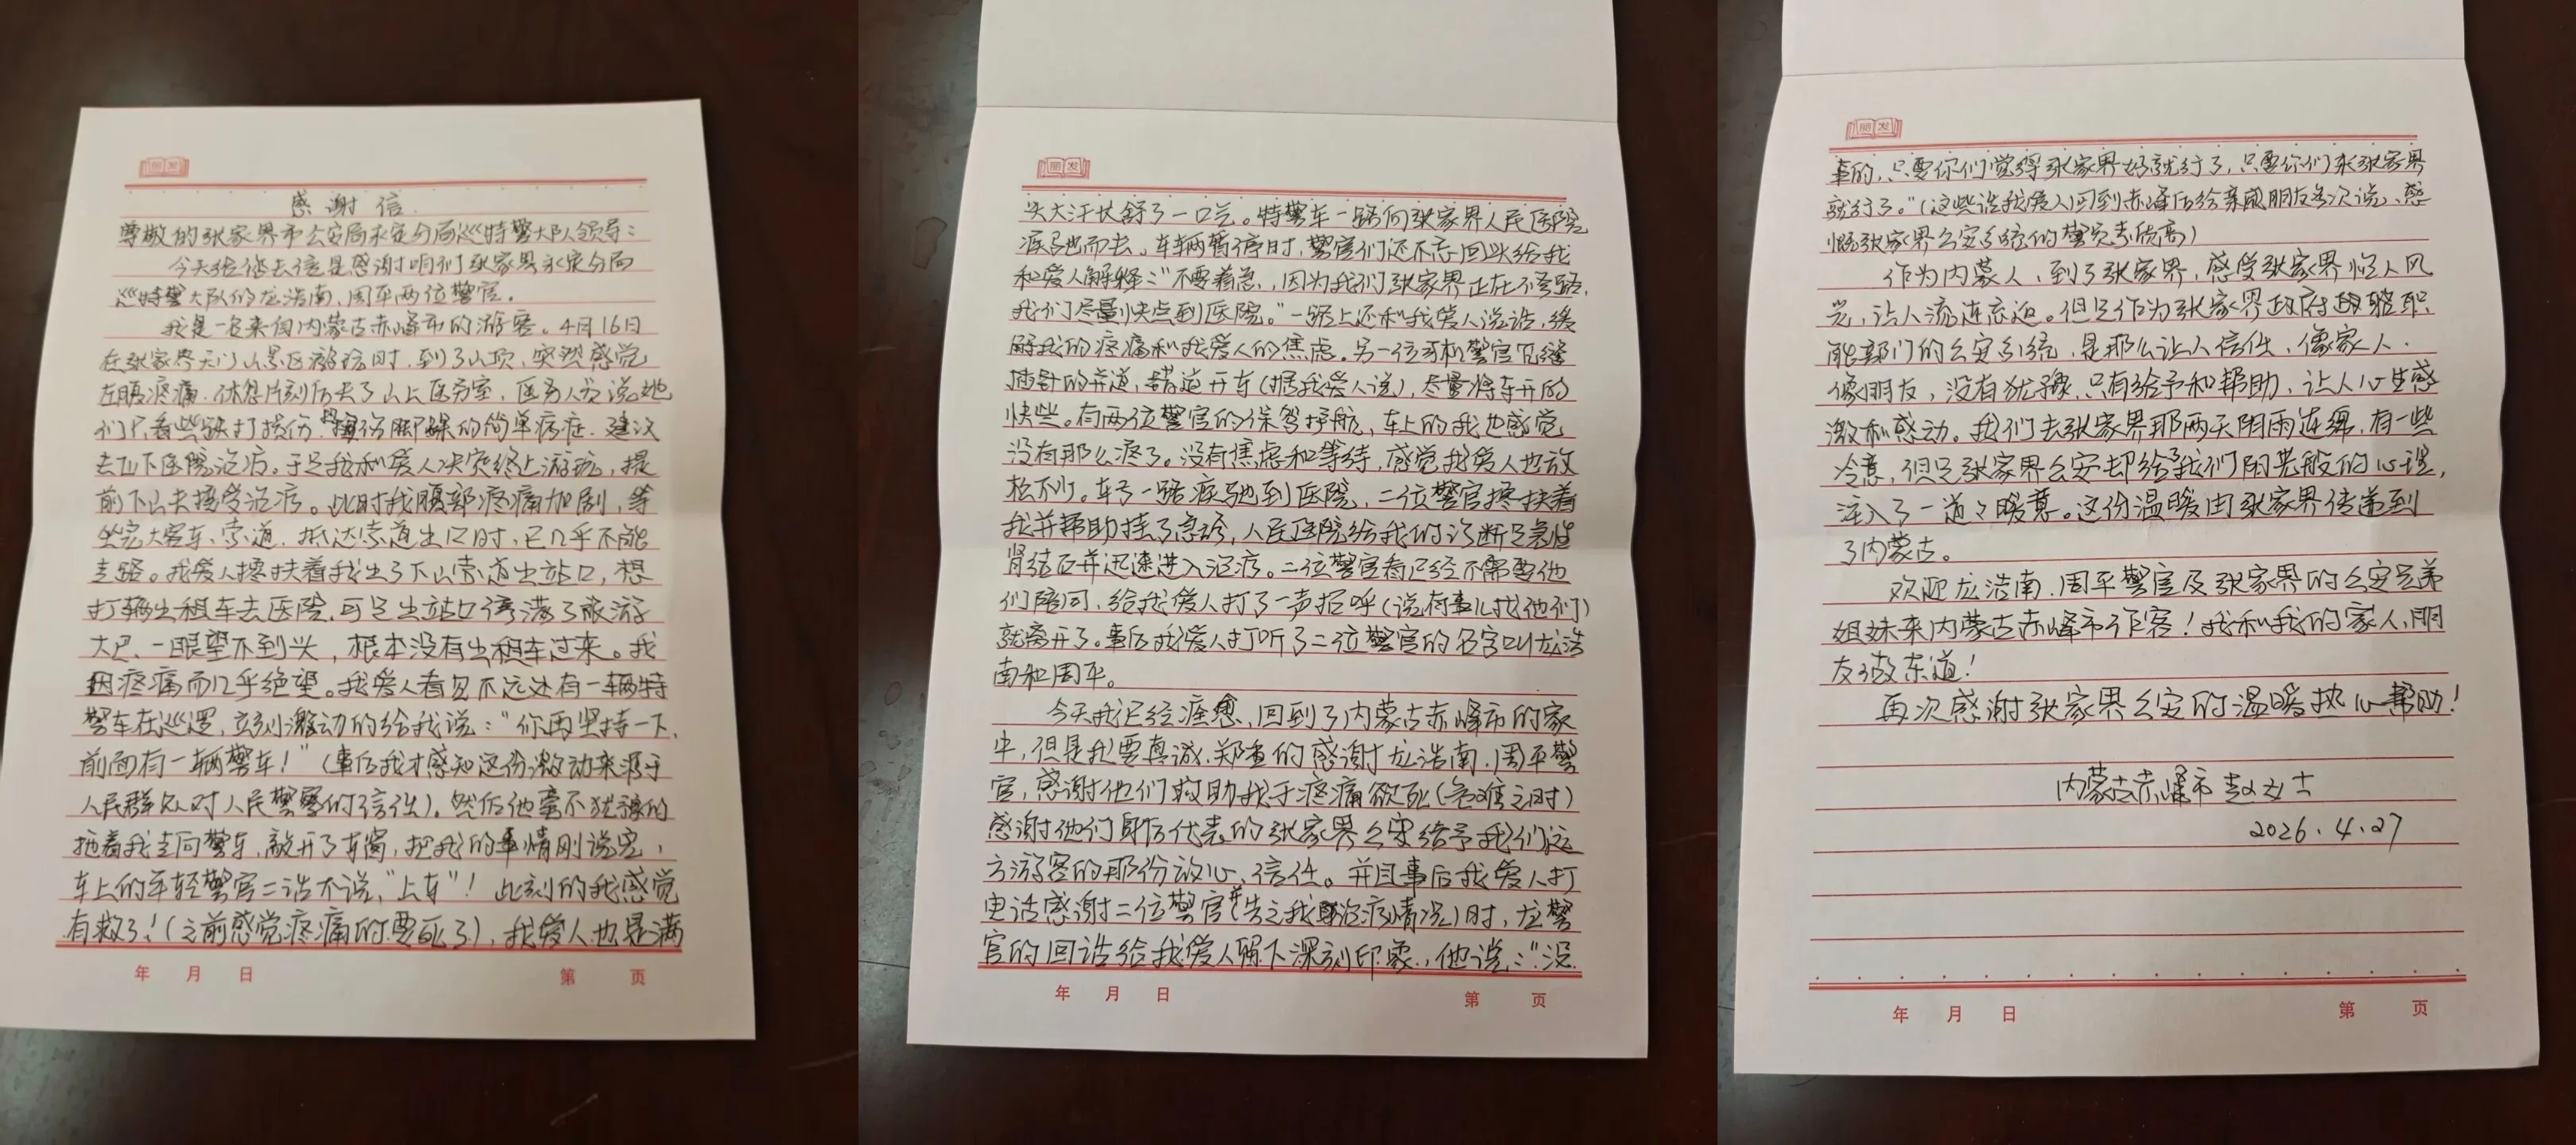 丽发
感谢信
尊敬的张家界市公安局永定分局巡特警大队领导：
今天给您去信是感谢咱们张家界永定分局
巡特警大队的龙浩南、周平两位警官。
我是一名来自内蒙古赤峰市的游客。4月16日
在张家界天门山景区游玩时，到了山顶，突然感觉
左腹疼痛，休息片刻后去了山上医务室，医务人员说她
们只看些跌打损伤、脚踝的简单病症，建议
去山下医院治疗。于是我和爱人决定终止游玩，提
前下山去接受治疗。此时我腹部疼痛加剧，等
坐完大客车、索道，抵达索道出口时，已几乎不能
走路。我爱人搀扶着我出了下山索道出站口，想
打辆出租车去医院，可是出站口停满了旅游
大巴，一眼望不到头，根本没有出租车过来。我
因疼痛而几乎绝望。我爱人看见不远处有一辆特
警车在巡逻，立刻激动的给我说：“你再坚持一下，
前面有一辆警车！”（事后我才感知这份激动来源于
人民群众对人民警察的信任）。然后他毫不犹豫的
拖着我走向警车，敲开了车窗，把我的事情刚说完，
车上的年轻警官二话不说，“上车”！此刻的我感觉
有救了！（之前感觉疼痛的要死了），我爱人也是满
年 月 日 第 页
丽发
头大汗长舒了一口气。特警车一路向张家界人民医院
疾驰而去。车辆暂停时，警官们还不忘回头给我
和爱人解释：“不要着急，因为我们张家界正在修路，
我们尽量快点到医院。”一路上还和我爱人说话，缓
解我的疼痛和我爱人的焦虑。另一位司机警官见缝
插针的并道，错道开车（据我爱人说），尽量将车开的
快些。有两位警官的保驾护航，车上的我也感觉
没有那么疼了。没有焦虑和等待，感觉我爱人也放
松不少。车子一路疾驰到医院，二位警官搀扶着
我并帮助挂了急诊，人民医院给我的诊断是急性
肾结石并迅速进入治疗。二位警官看已经不需要他
们陪同，给我爱人打了一声招呼（说有事儿找他们）
就离开了。事后我爱人打听了二位警官的名字叫龙浩
南和周平。
今天我已经痊愈，回到了内蒙古赤峰市的家
中，但是我要真诚、郑重的感谢龙浩南、周平警
官，感谢他们救助我于疼痛欲死（危难之时）
感谢他们身后代表的张家界公安给予我们远
方游客的那份放心、信任。并且事后我爱人打
电话感谢二位警官（并告之我治疗情况）时，龙警
官的回话给我爱人留下深刻印象，他说：“没
年 月 日 第 页
丽发
事的，只要你们觉得张家界好就行了，只要你们来张家界
就行了。”（这些话我爱人回到赤峰后给亲戚朋友多次说、感
慨张家界公安系统的警员素质高）
作为内蒙人，到了张家界，感受张家界怡人风
光，让人流连忘返。但是作为张家界政府职
能部门的公安系统，是那么让人信任，像家人、
像朋友，没有犹豫，只有给予和帮助，让人心生感
激和感动。我们去张家界那两天阴雨连绵，有一些
冷意，但是张家界公安却给了我们阳光般的心理，
注入了一道々暖意。这份温暖由张家界传递到
了内蒙古。
欢迎龙浩南、周平警官及张家界的公安兄弟
姐妹来内蒙古赤峰市作客！我和我的家人、朋
友做东道！
再次感谢张家界公安的温暖热心帮助！
内蒙古赤峰市赵女士
2026.4.27
年 月 日 第 页